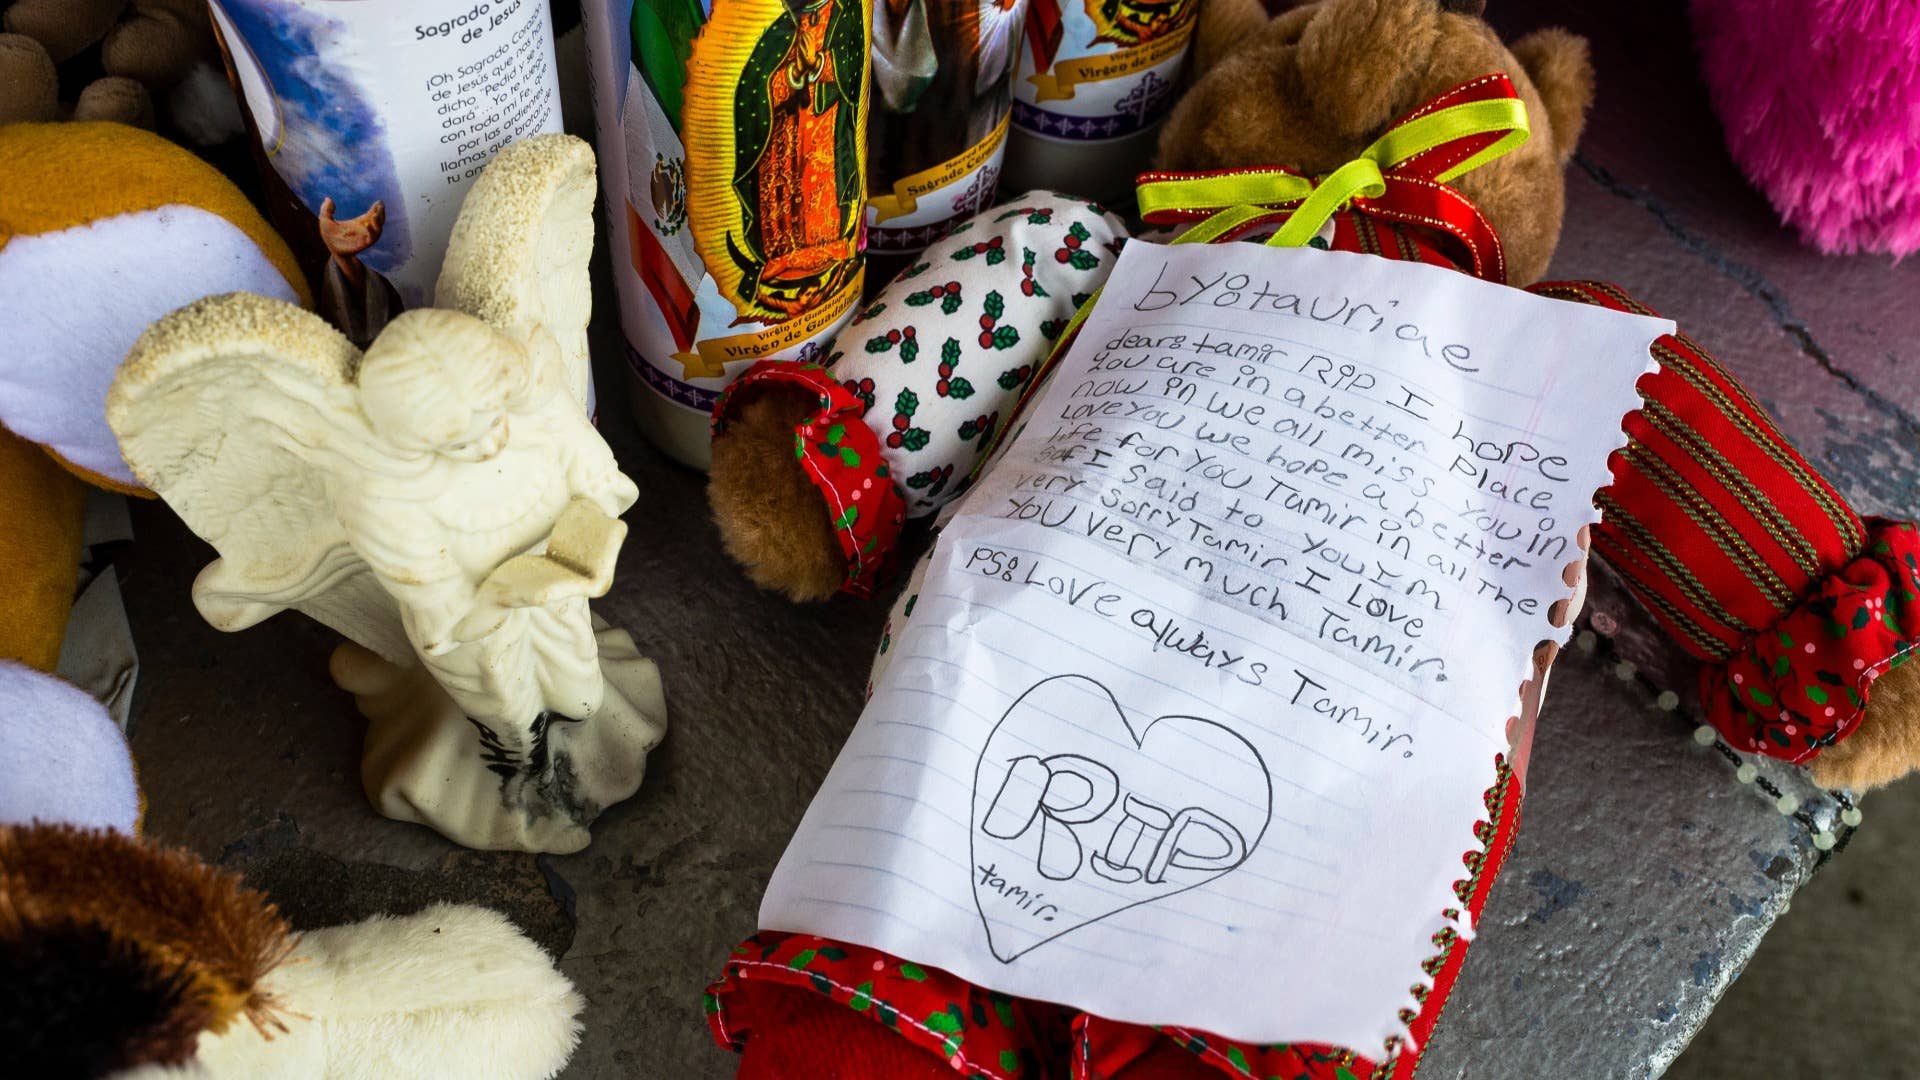 Sagrado
de Jesús
¡Oh Sagrado Corazón
de Jesús que nos has
dicho, "Pedid y se os
dará"... Yo te ruego
con toda mi Fe, que
por las ardientes
llamas que brotan de
tu corazón
Virgin of Guadalupe
Virgen de Guadalupe
Sacred Heart
Sagrado Corazón
Virgin of
Virgen de Guada
by: tauriae
dear: tamir RIP I hope
you are in a better place
now in we all miss you in
Love you we hope a better
life for you Tamir in all The
sof I said to you I'm
very sorry Tamir I Love
you very much Tamir.
PS: Love always Tamir.
RIP
tamir.